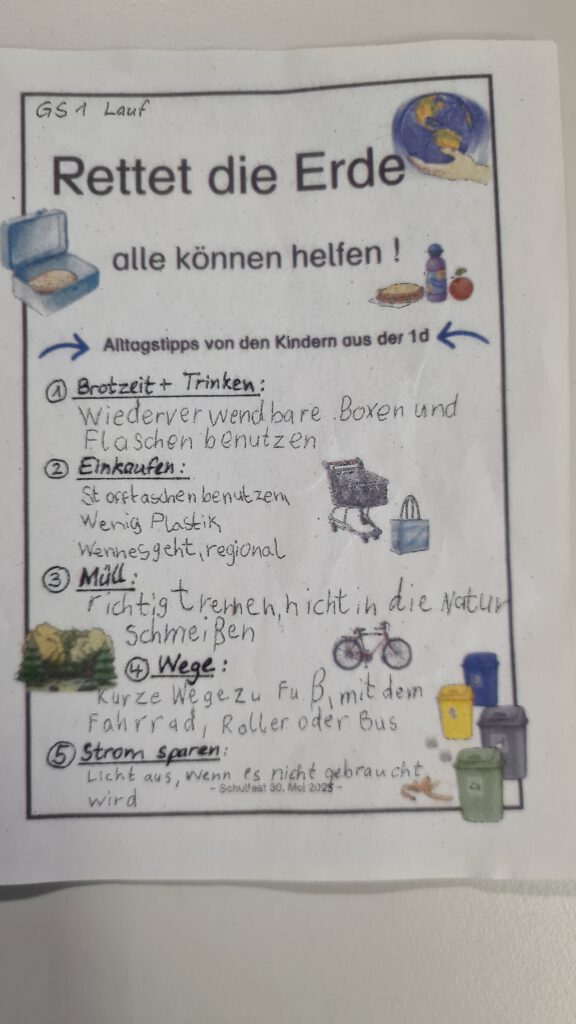 GS 1 Lauf
Rettet die Erde
alle können helfen !
Alltagstipps von den Kindern aus der 1d
① Brotzeit + Trinken:
Wiederverwendbare Boxen und
Flaschen benutzen
② Einkaufen:
Stofftaschen benutzen,
Wenig Plastik
Wennesgeht, regional
③ Müll:
richtig trennen, nicht in die Natur
schmeißen
④ Wege:
Kurze Wege zu Fuß, mit dem
Fahrrad, Roller oder Bus
⑤ Strom sparen:
Licht aus, wenn es nicht gebraucht
wird
- Schulfest 30. Mai 2025 -